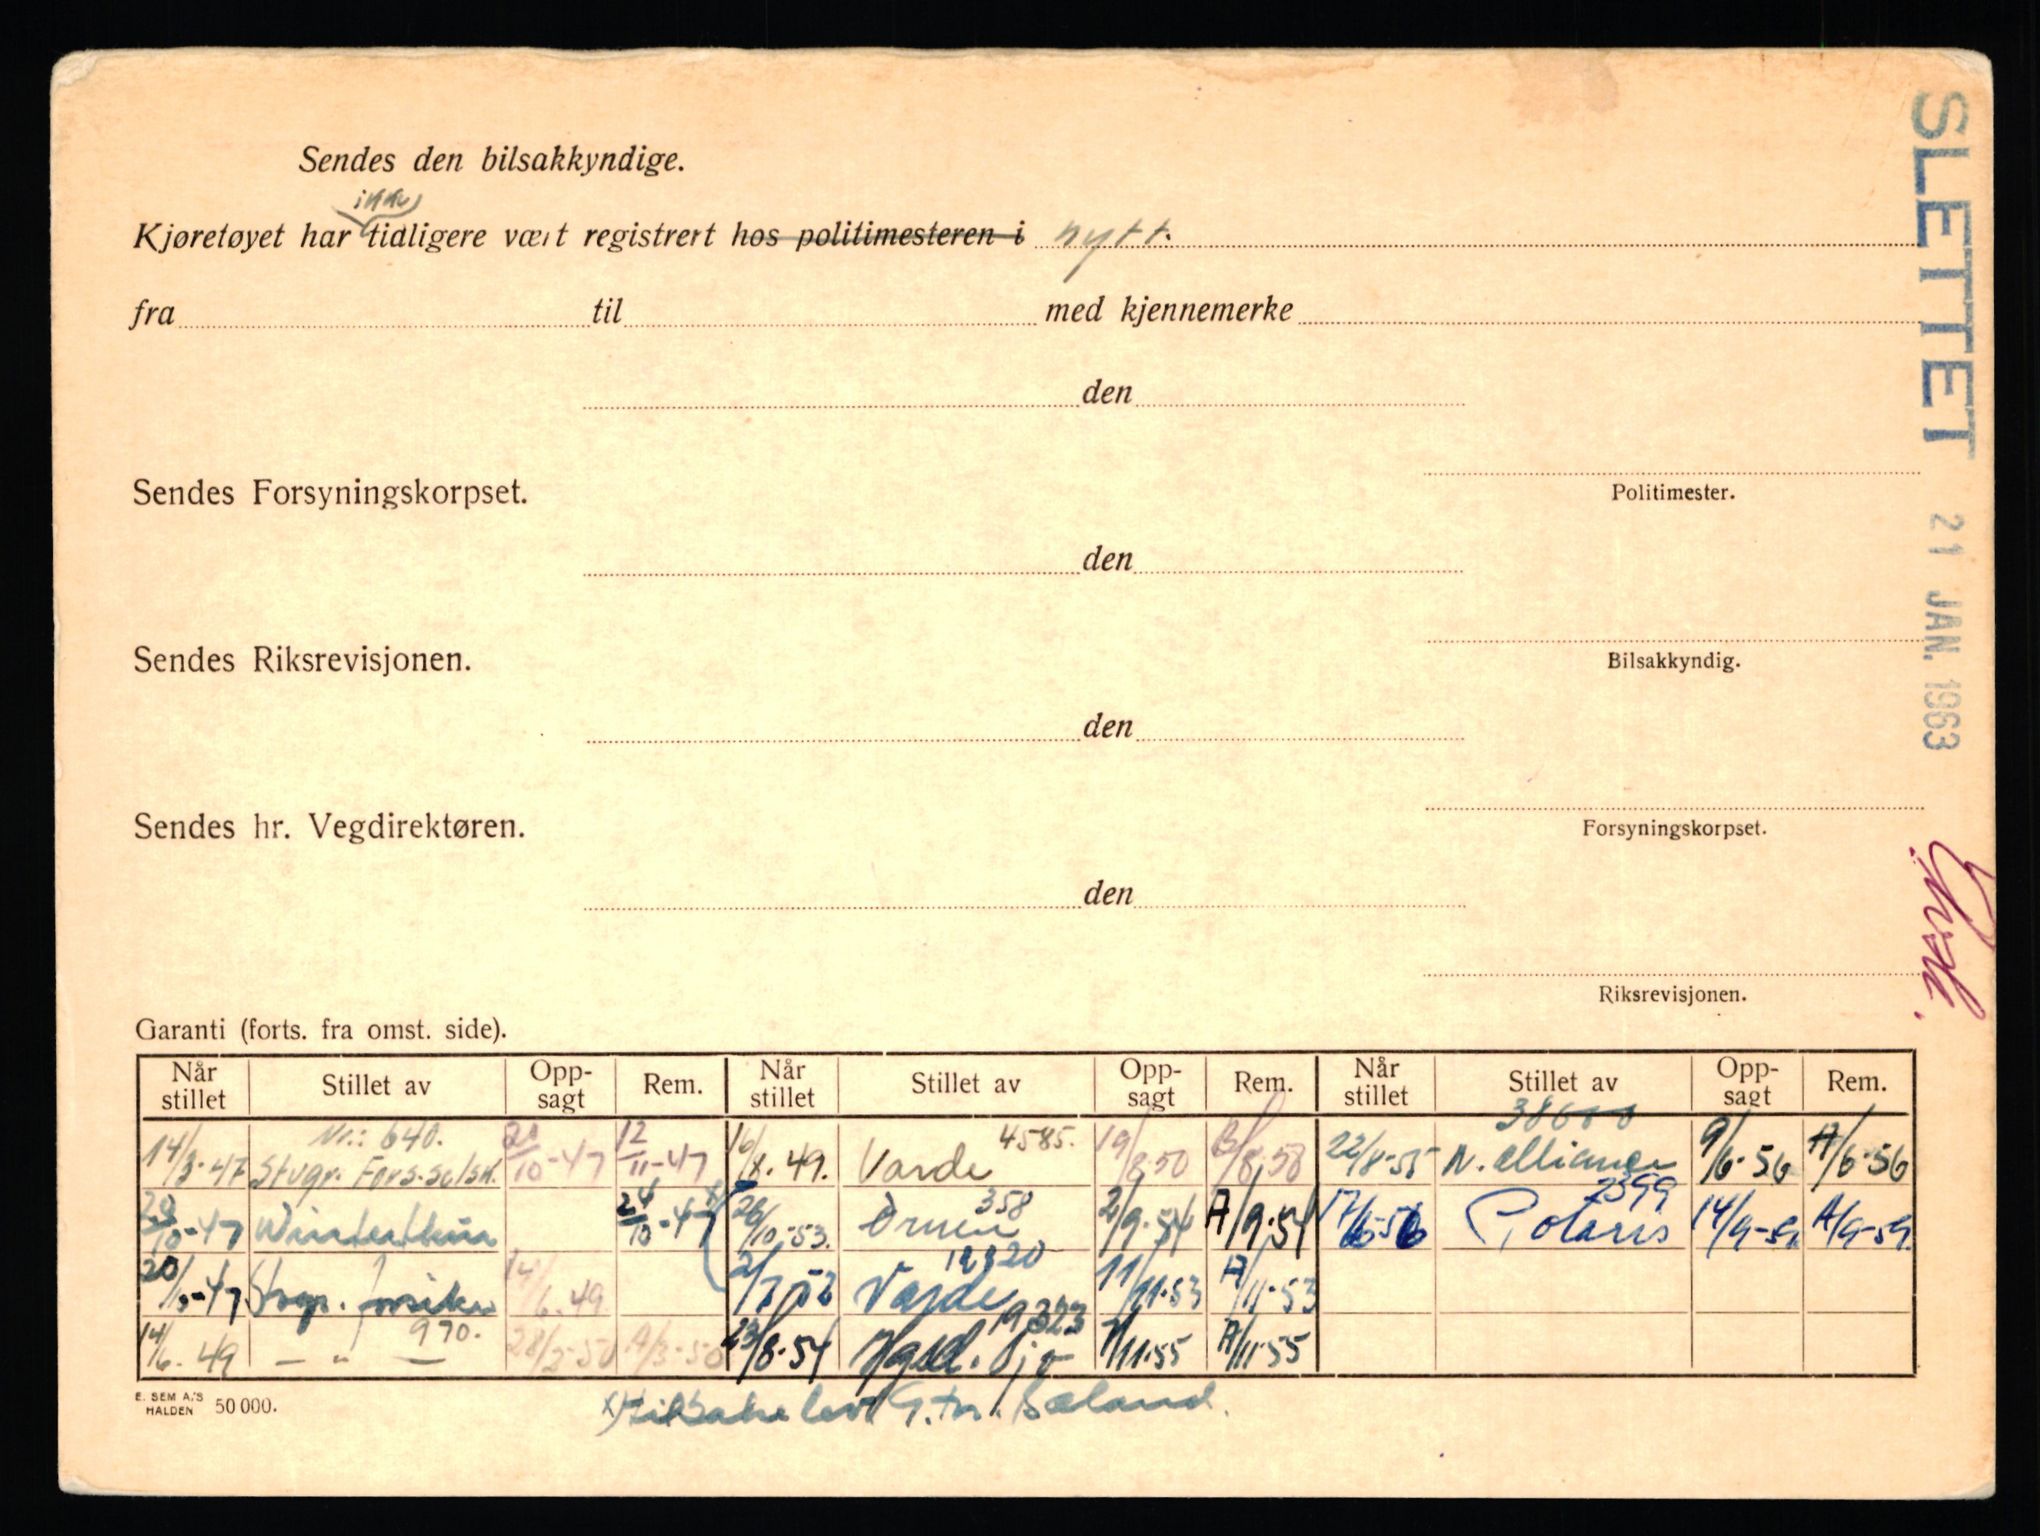 Sendes den bilsakkyndige.
ikke
Kjøretøyet har tidligere vært registrert hos politimesteren i nytt.
fra til med kjennemerke
den
Politimester.
Sendes Forsyningskorpset.
den
Bilsakkyndig.
Sendes Riksrevisjonen.
den
Forsyningskorpset.
Sendes hr. Vegdirektøren.
den
Riksrevisjonen.
SLETTET 21 JAN. 1963
Garanti (forts. fra omst. side).
Når stillet Stillet av Opp-sagt Rem. Når stillet Stillet av Opp-sagt Rem. Når stillet Stillet av Opp-sagt Rem.
14/3-47 Nr.: 640. Stvgr. Fors.selsk. 20/10-47 12/11-47 16/8.49. Varde 4585. 19/8.50 22/8-55 N. Alliance 38600 9/6-56 A/6-56
20/10-47 Winterthur 24/10-47 x) 26/10-53. Ørnen 358 2/9-54 A/9-54 17/6-56 Polaris 2399 14/9-59. A/9-59.
20/10-47 Stvgr. forsikr. 14/6.49 2/7 52 Varde 12820 11/11-53 A/11-53
14/6.49 — " — 970. 28/2-50 A/3-50 23/8-54 19323 1/11-55 A/11-55
x) tilbakelev. G. tn. Sæland.
E. SEM A.'S HALDEN 50 000.